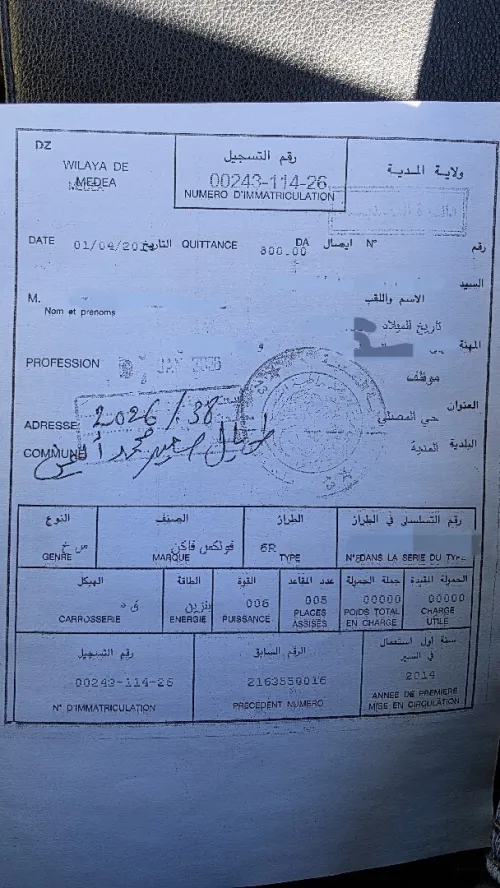 DZ
WILAYA DE
MEDEA
رقم التسجيل
00243-114-26
NUMERO D'IMMATRICULATION
ولاية المدية
DATE 01/04/ التاريخ QUITTANCE 800.00 DA ايصال N° رقم
السيد
M.
Nom et prenoms
الاسم واللقب
تاريخ الميلاد
المهنة
PROFESSION
موظف
العنوان
ADRESSE
2026/38
حي المصلى
COMMUNE
البلدية المدية
النوع
GENRE
الصنف
فولكس فاكن
MARQUE
الطراز
6R
TYPE
رقم التسلسلي في الطراز
N° DANS LA SERIE DU TYPE
الهيكل
CARROSSERIE
الطاقة
بنزين
ENERGIE
القوة
006
PUISSANCE
عدد المقاعد
005
PLACES
ASSISES
جملة الحمولة
00000
POIDS TOTAL
EN CHARGE
الحمولة المقيدة
00000
CHARGE
UTILE
رقم التسجيل
00243-114-26
N° D'IMMATRICULATION
الرقم السابق
2163550016
PRECEDENT NUMERO
سنة اول استعمال
في السير
2014
ANNEE DE PREMIERE
MISE EN CIRCULATION